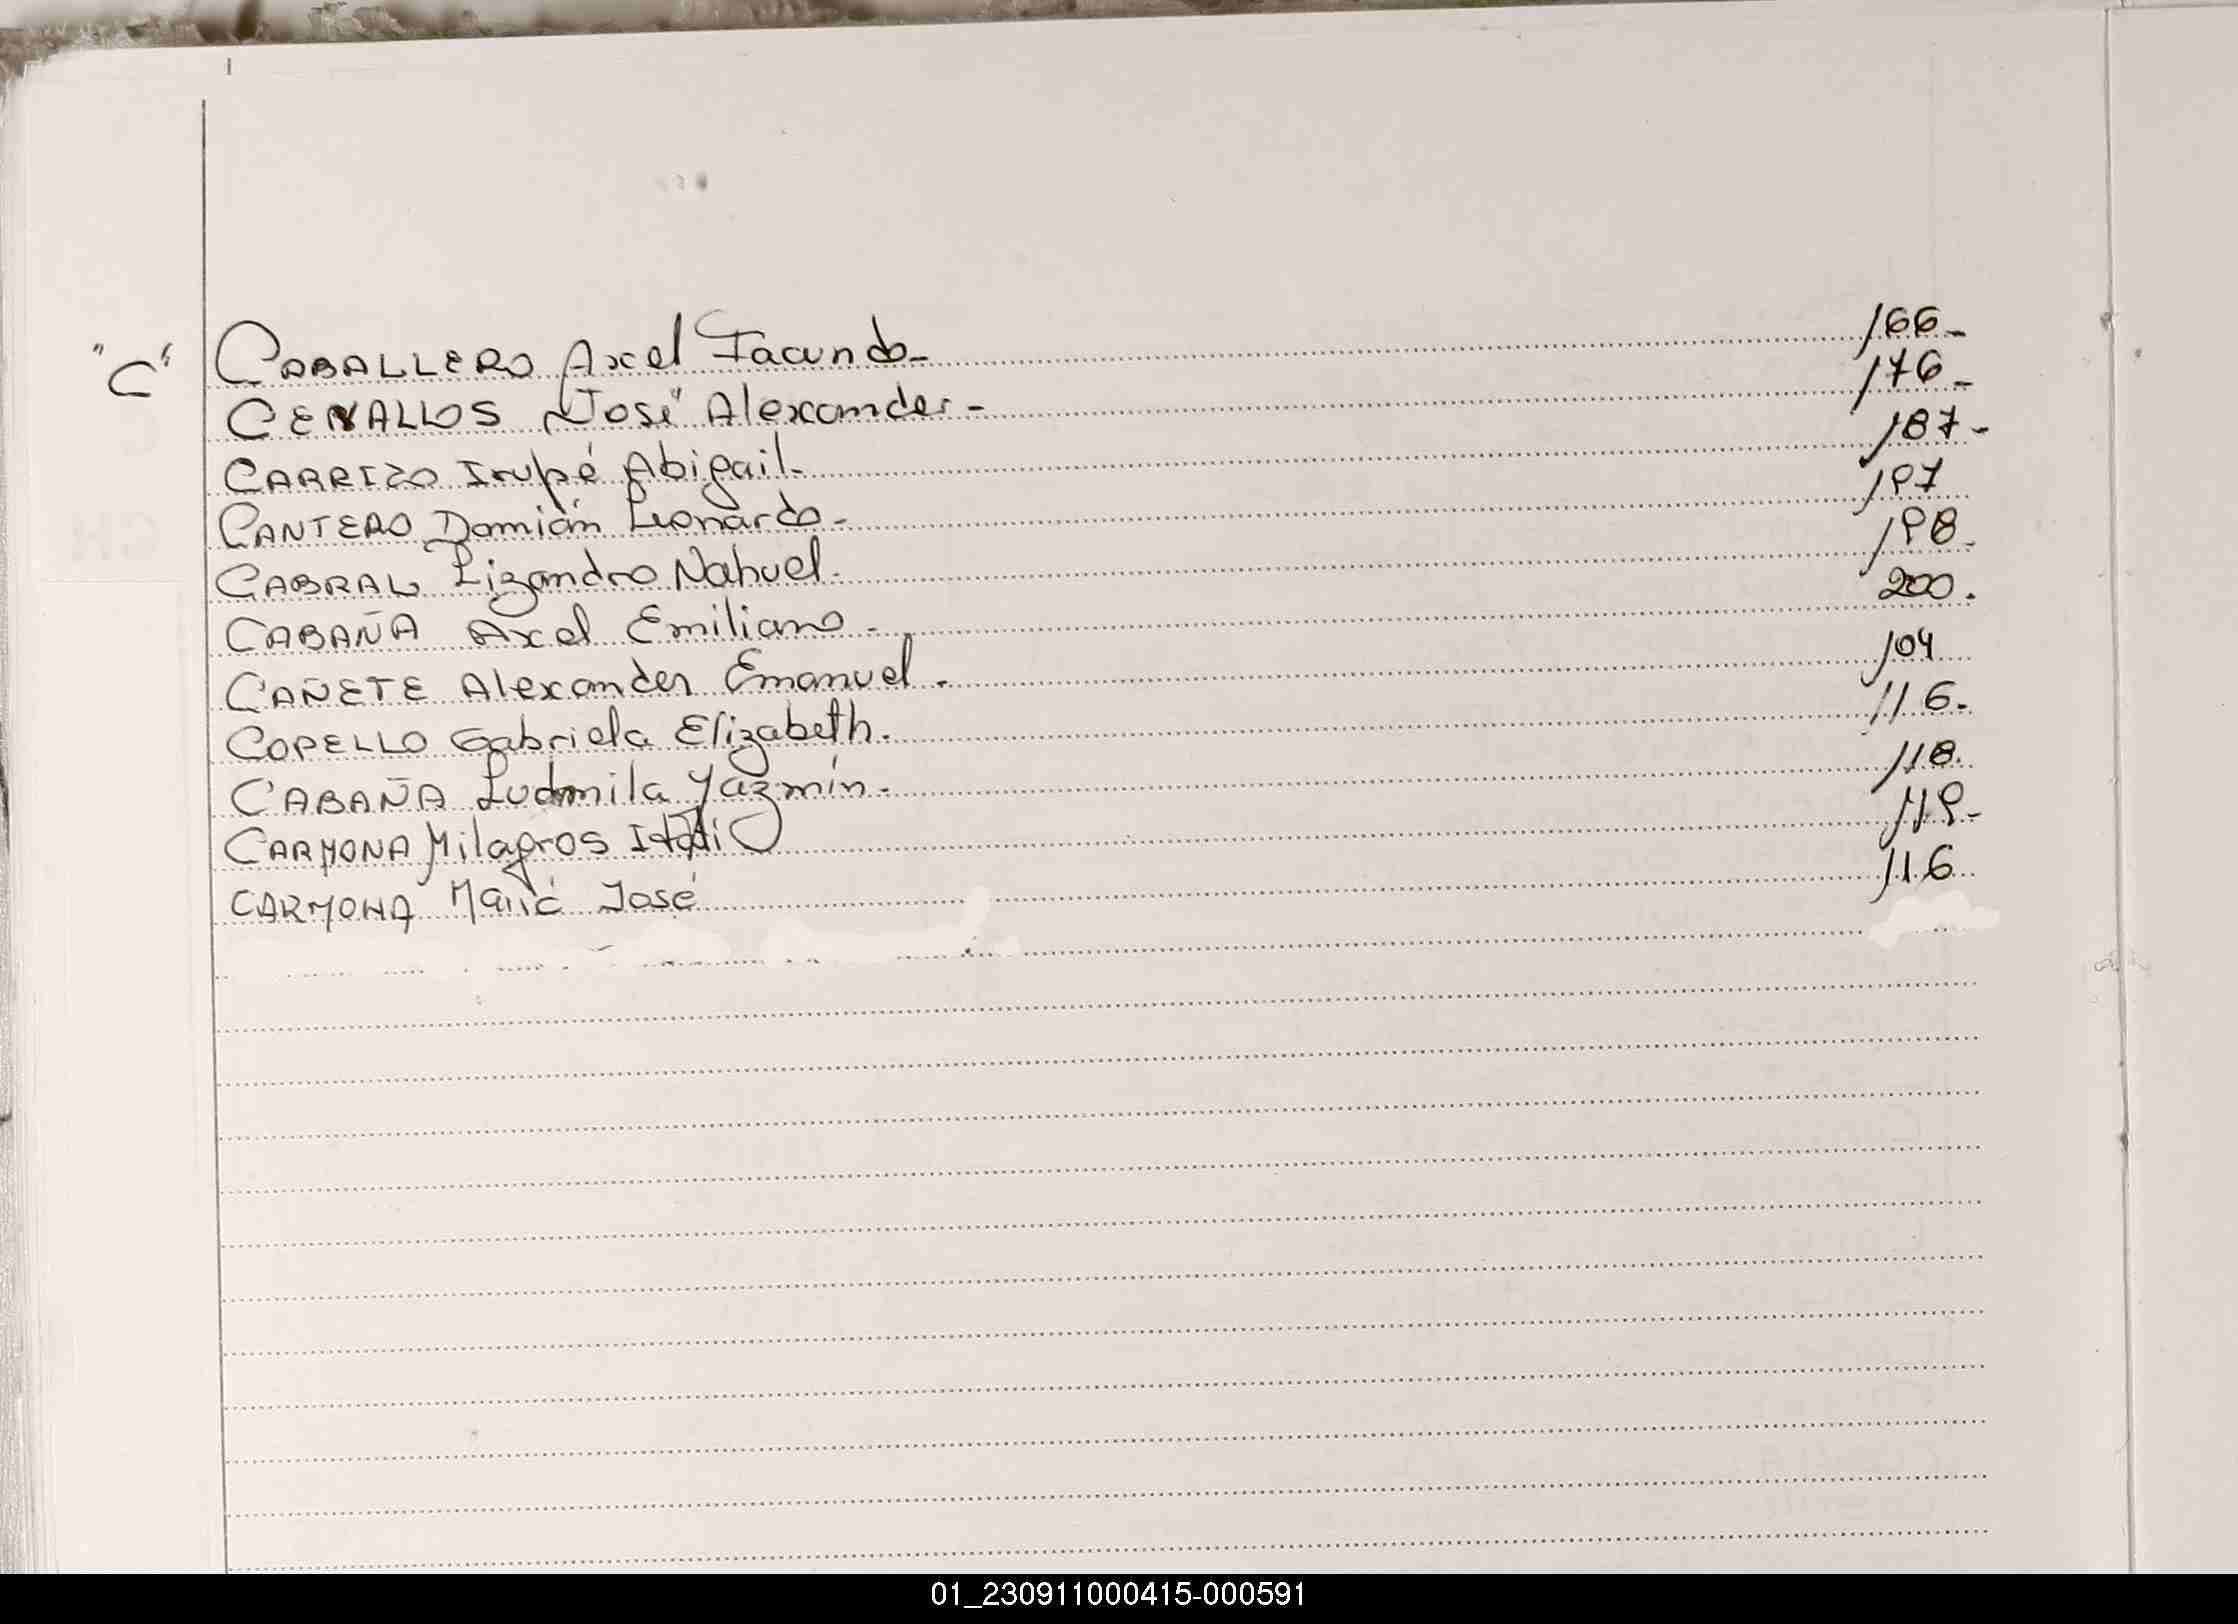 "C" CABALLERO Axel Facundo- 166-
CEVALLOS José Alexander- 176-
CARRIZO Irupé Abigail- 187-
CANTERO Damián Leonardo- 197
CABRAL Lizandro Nahuel- 198-
CABAÑA Axel Emiliano- 200.
CAÑETE Alexander Emanuel. 104
COPELLO Gabriela Elizabeth. 116.
CABAÑA Ludmila Yazmín. 118.
CARMONA Milagros Itatí 119-
CARMONA María José 116
01_230911000415-000591